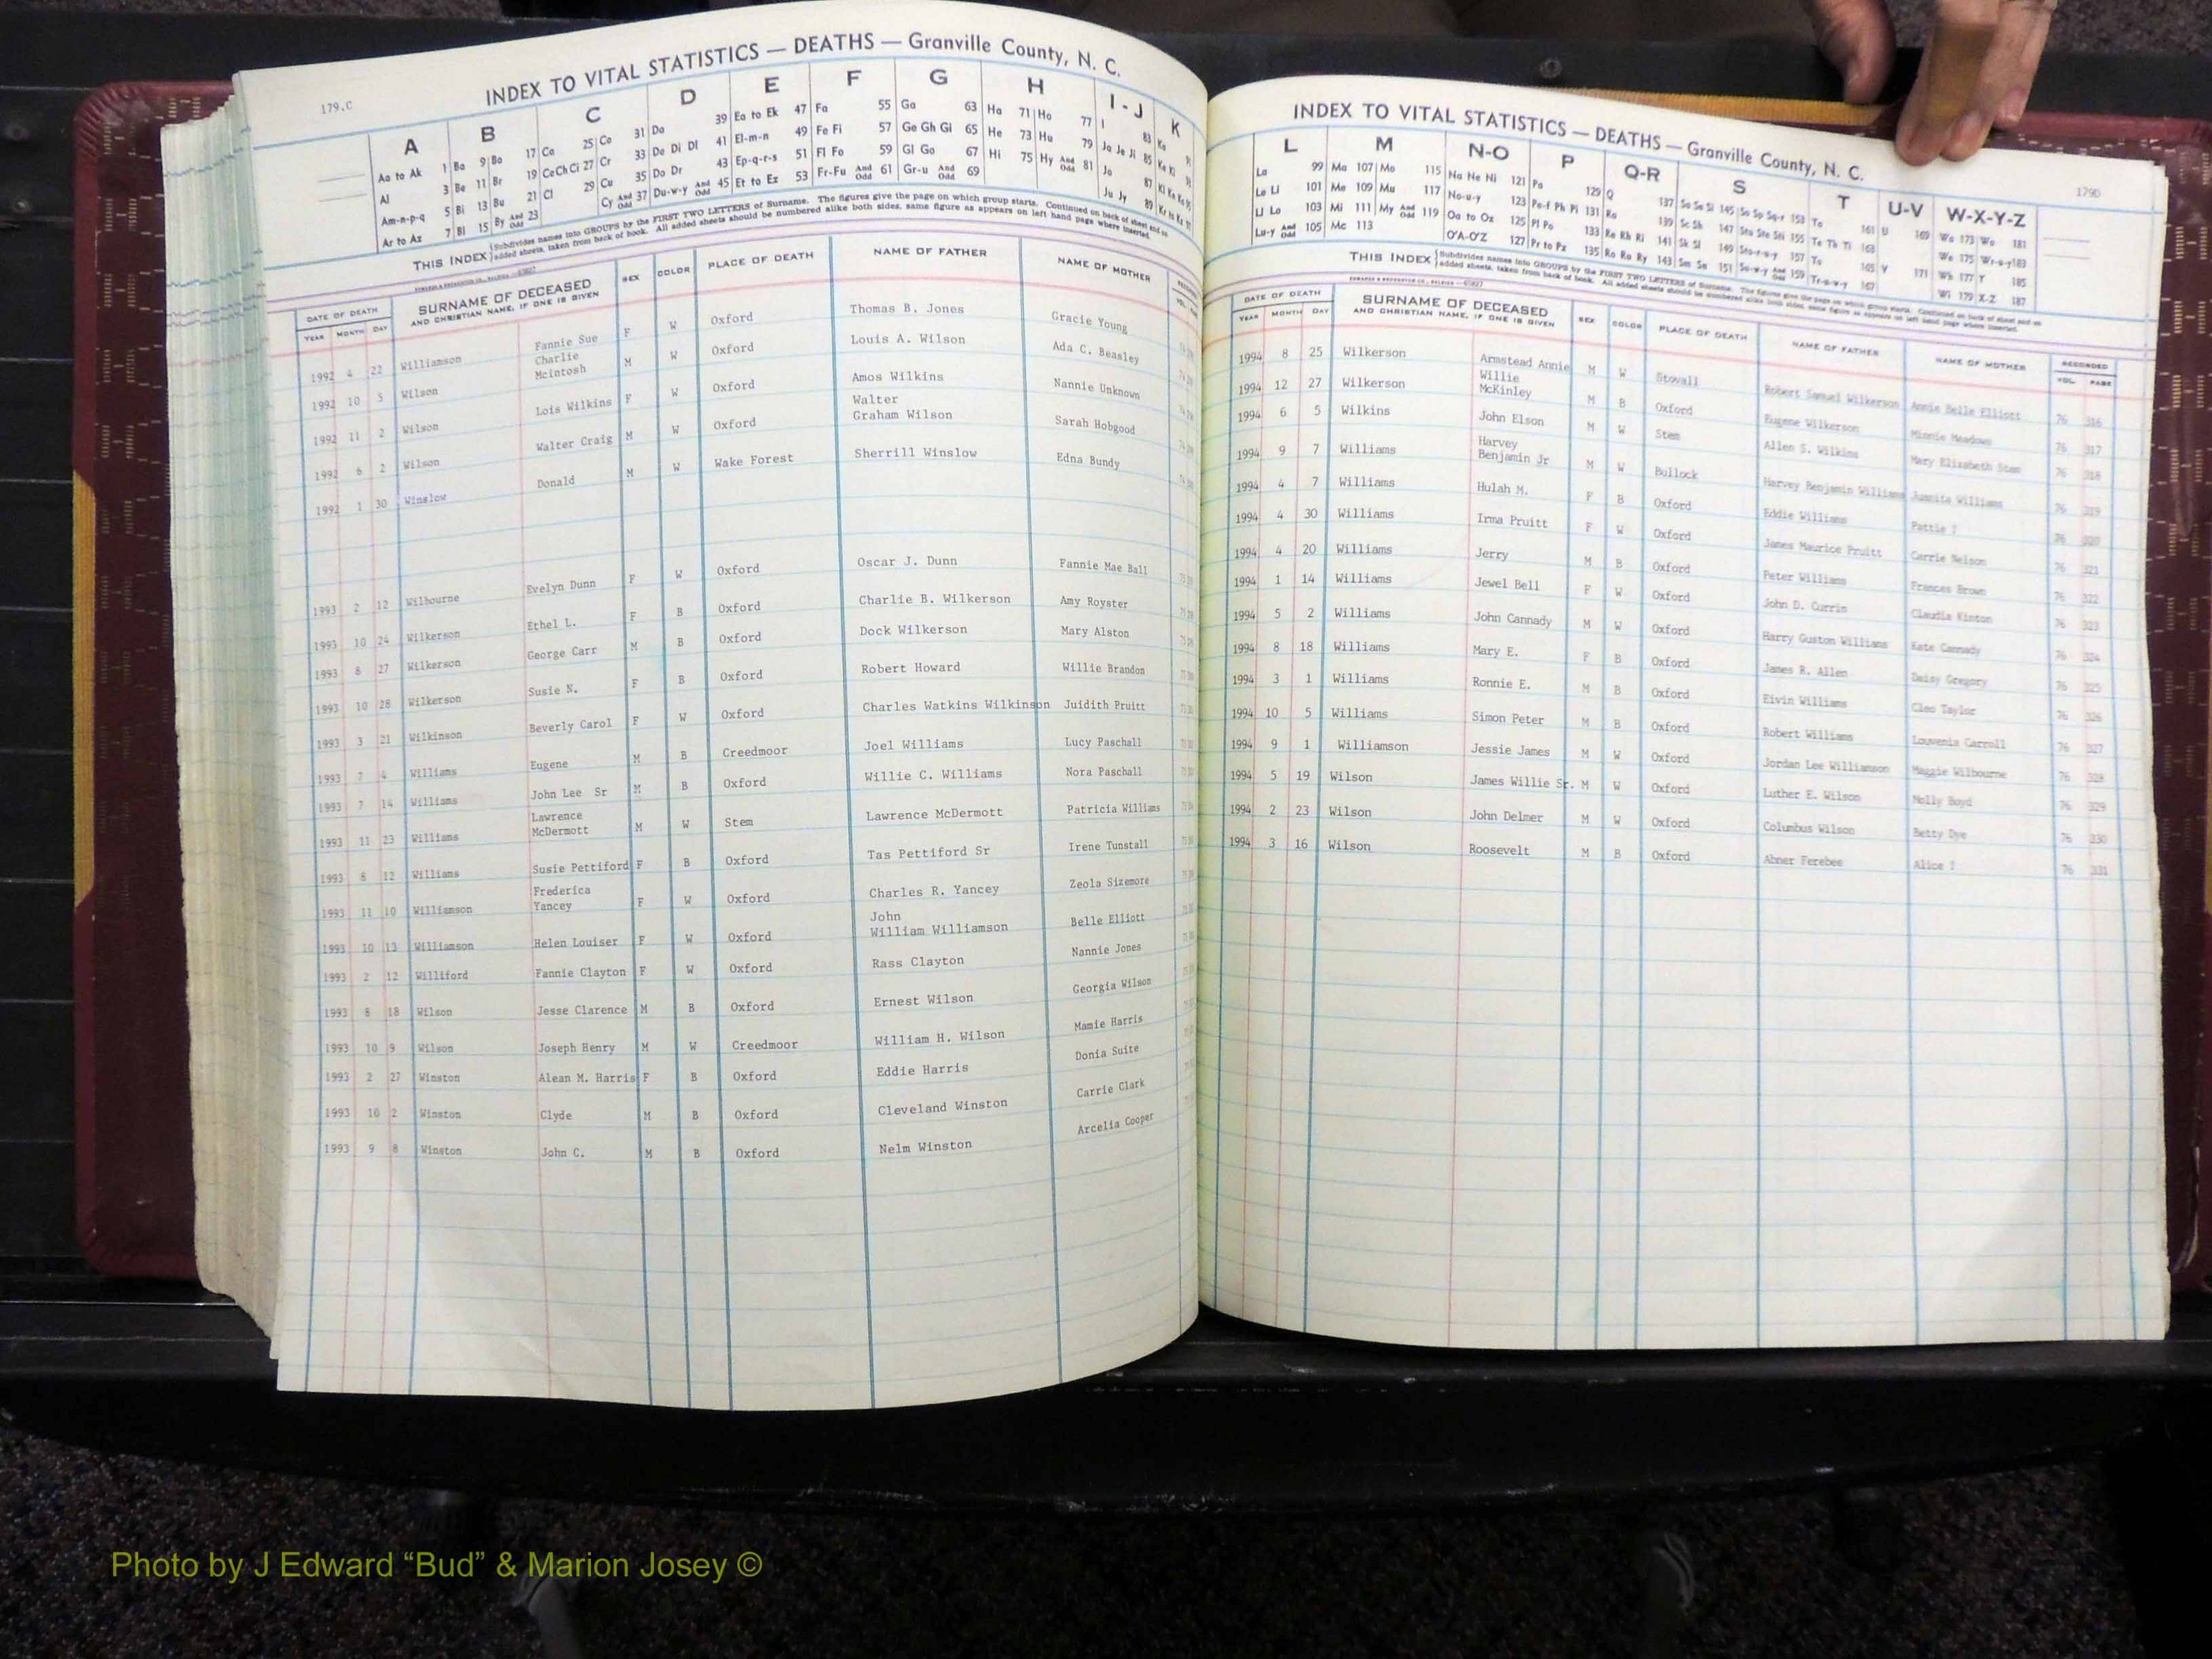 179.C
INDEX TO VITAL STATISTICS — DEATHS — Granville County, N. C.
A B C D E F G H I-J K
Aa to Ak 1 Ba 9 Bo 17 Ca 25 Co 31 Da 39 Ea to Ek 47 Fa 55 Ga 63 Ha 71 Ho 77 I 83 Ka
Al 3 Be 11 Br 19 Ce Ch Ci 27 Cr 33 De Di Dl 41 El-m-n 49 Fe Fi 57 Ge Gh Gl 65 He 73 Hu 79 Ja Je Ji 85
Am-n-p-q 5 Bi 13 Bu 21 Cl 29 Cu 35 Do Dr 43 Ep-q-r-s 51 Fl Fo 59 Gl Go 67 Hi 75 Hy And Odd 81 Jo 87
Ar to Az 7 Bl 15 By And Odd 23 Cy And Odd 37 Du-w-y And Odd 45 Et to Ez 53 Fr-Fu And Odd 61 Gr-u And Odd 69 Ju Jy 89
THIS INDEX Subdivides names into GROUPS by the FIRST TWO LETTERS of Surname. The figures give the page on which group starts. Continued on back of sheet and on
added sheets, taken from back of book. All added sheets should be numbered alike both sides, same figure as appears on left hand page where inserted.
DATE OF DEATH SURNAME OF DECEASED SEX COLOR PLACE OF DEATH NAME OF FATHER NAME OF MOTHER
YEAR MONTH DAY AND CHRISTIAN NAME, IF ONE IS GIVEN
1992 4 22 Williamson Fannie Sue F W Oxford Thomas B. Jones Gracie Young
1992 10 5 Wilson Charlie Mcintosh M W Oxford Louis A. Wilson Ada C. Beasley
1992 11 2 Wilson Lois Wilkins F W Oxford Amos Wilkins Nannie Unknown
1992 6 2 Wilson Walter Craig M W Oxford Walter Graham Wilson Sarah Hobgood
1992 1 30 Winslow Donald M W Wake Forest Sherrill Winslow Edna Bundy
1993 2 12 Wilbourne Evelyn Dunn F W Oxford Oscar J. Dunn Fannie Mae Ball
1993 10 24 Wilkerson Ethel L. F B Oxford Charlie B. Wilkerson Amy Royster
1993 8 27 Wilkerson George Carr M B Oxford Dock Wilkerson Mary Alston
1993 10 28 Wilkerson Susie N. F B Oxford Robert Howard Willie Brandon
1993 3 21 Wilkinson Beverly Carol F W Oxford Charles Watkins Wilkinson Juidith Pruitt
1993 7 4 Williams Eugene M B Creedmoor Joel Williams Lucy Paschall
1993 7 14 Williams John Lee Sr M B Oxford Willie C. Williams Nora Paschall
1993 11 23 Williams Lawrence McDermott M W Stem Lawrence McDermott Patricia Williams
1993 8 12 Williams Susie Pettiford F B Oxford Tas Pettiford Sr Irene Tunstall
1993 11 10 Williamson Frederica Yancey F W Oxford Charles R. Yancey Zeola Sizemore
1993 10 13 Williamson Helen Louiser F W Oxford John William Williamson Belle Elliott
1993 2 12 Williford Fannie Clayton F W Oxford Rass Clayton Nannie Jones
1993 8 18 Wilson Jesse Clarence M B Oxford Ernest Wilson Georgia Wilson
1993 10 9 Wilson Joseph Henry M W Creedmoor William H. Wilson Mamie Harris
1993 2 27 Winston Alean M. Harris F B Oxford Eddie Harris Donia Suite
1993 10 2 Winston Clyde M B Oxford Cleveland Winston Carrie Clark
1993 9 8 Winston John C. M B Oxford Nelm Winston Arcelia Cooper
179D
INDEX TO VITAL STATISTICS — DEATHS — Granville County, N. C.
L M N-O P Q-R S T U-V W-X-Y-Z
La 99 Ma 107 Mo 115 Na Ne Ni 121 Pa 129 Q 137 Sa Se Si 145 So Sp Sq-r 153 Ta 161 U 169 Wa 173 Wo 181
Le Li 101 Me 109 Mu 117 No-u-y 123 Pe-f Ph Pi 131 Ra 139 Sc Sh 147 Sta Ste Sti 155 Te Th Ti 163 We 175 Wr-u-y 183
Ll Lo 103 Mi 111 My And Odd 119 Oa to Oz 125 Pl Po 133 Re Rh Ri 141 Sk Sl 149 Sto-r-u-y 157 To 165 V 171 Wh 177 Y 185
Lu-y And Odd 105 Mc 113 O'A-O'Z 127 Pr to Pz 135 Ro Ru Ry 143 Sm Sn 151 Su-w-y And Odd 159 Tr-u-w-y 167 Wi 179 X-Z 187
THIS INDEX Subdivides names into GROUPS by the FIRST TWO LETTERS of Surname. The figures give the page on which group starts. Continued on back of sheet and on
added sheets, taken from back of book. All added sheets should be numbered alike both sides, same figure as appears on left hand page where inserted.
DATE OF DEATH SURNAME OF DECEASED SEX COLOR PLACE OF DEATH NAME OF FATHER NAME OF MOTHER RECORDED
YEAR MONTH DAY AND CHRISTIAN NAME, IF ONE IS GIVEN VOL. PAGE
1994 8 25 Wilkerson Armstead Annie M W Stovall Robert Samuel Wilkerson Annie Belle Elliott 76 316
1994 12 27 Wilkerson Willie McKinley M B Oxford Eugene Wilkerson Minnie Meadows 76 317
1994 6 5 Wilkins John Elson M W Stem Allen S. Wilkins Mary Elizabeth Stem 76 318
1994 9 7 Williams Harvey Benjamin Jr M W Bullock Harvey Benjamin Williams Juanita Williams 76 319
1994 4 7 Williams Hulah M. F B Oxford Eddie Williams Pattie ? 76 320
1994 4 30 Williams Irma Pruitt F W Oxford James Maurice Pruitt Carrie Nelson 76 321
1994 4 20 Williams Jerry M B Oxford Peter Williams Frances Brown 76 322
1994 1 14 Williams Jewel Bell F W Oxford John D. Currin Claudia Kinton 76 323
1994 5 2 Williams John Cannady M W Oxford Harry Guston Williams Kate Cannady 76 324
1994 8 18 Williams Mary E. F B Oxford James R. Allen Daisy Gregory 76 325
1994 3 1 Williams Ronnie E. M B Oxford Eivin Williams Cleo Taylor 76 326
1994 10 5 Williams Simon Peter M B Oxford Robert Williams Louvenia Carroll 76 327
1994 9 1 Williamson Jessie James M W Oxford Jordan Lee Williamson Maggie Wilbourne 76 328
1994 5 19 Wilson James Willie Sr. M W Oxford Luther E. Wilson Molly Boyd 76 329
1994 2 23 Wilson John Delmer M W Oxford Columbus Wilson Betty Dye 76 330
1994 3 16 Wilson Roosevelt M B Oxford Abner Ferebee Alice ? 76 331
Photo by J Edward “Bud” & Marion Josey ©